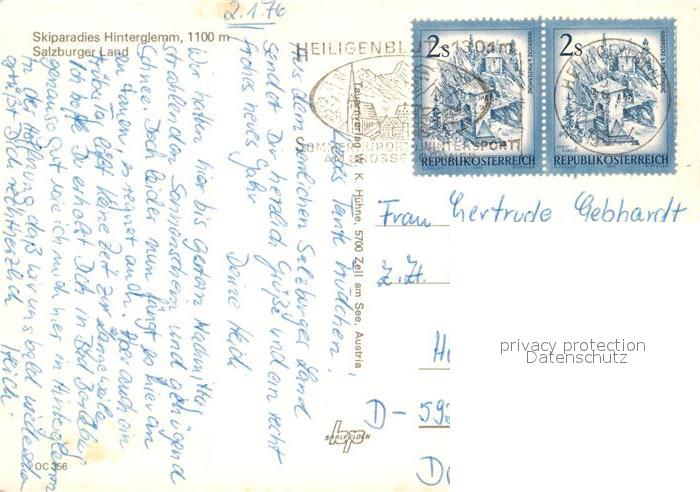 Skiparadies Hinterglemm, 1100 m
Salzburger Land
2.1.76
Liebes Tante Trudchen,
Aus dem herrlichen Salzburger Land
sendet Dir herzlich Grüße und ein recht
frohes neues Jahr
Deine Heidi
Wir hatten hier bis gestern Nachmittag
strahlenden Sonnenschein und genügend
Schnee. Doch leider nun fängt es hier an
zu tauen, es regnet auch. Aber auch ein
trüber Tag läßt keine Zeit zur Langeweile
Ich hoffe Du erholst Dich in Bad
genauso gut wie ich mich hier in Hinterglemm
In der Hoffnung daß wir uns bald wiedersehen
grüßt Dich recht herzlich Heidi
OC 356
Tauernverlag W. K. Hühne, 5700 Zell am See, Austria
hp
SAALFELDEN
HEILIGENBLUT 1301 m
WINTERSPORT
2s
REPUBLIK ÖSTERREICH
2s
REPUBLIK ÖSTERREICH
Frau Gertrude Gebhardt
z.Zt.
D-
privacy protection
Datenschutz